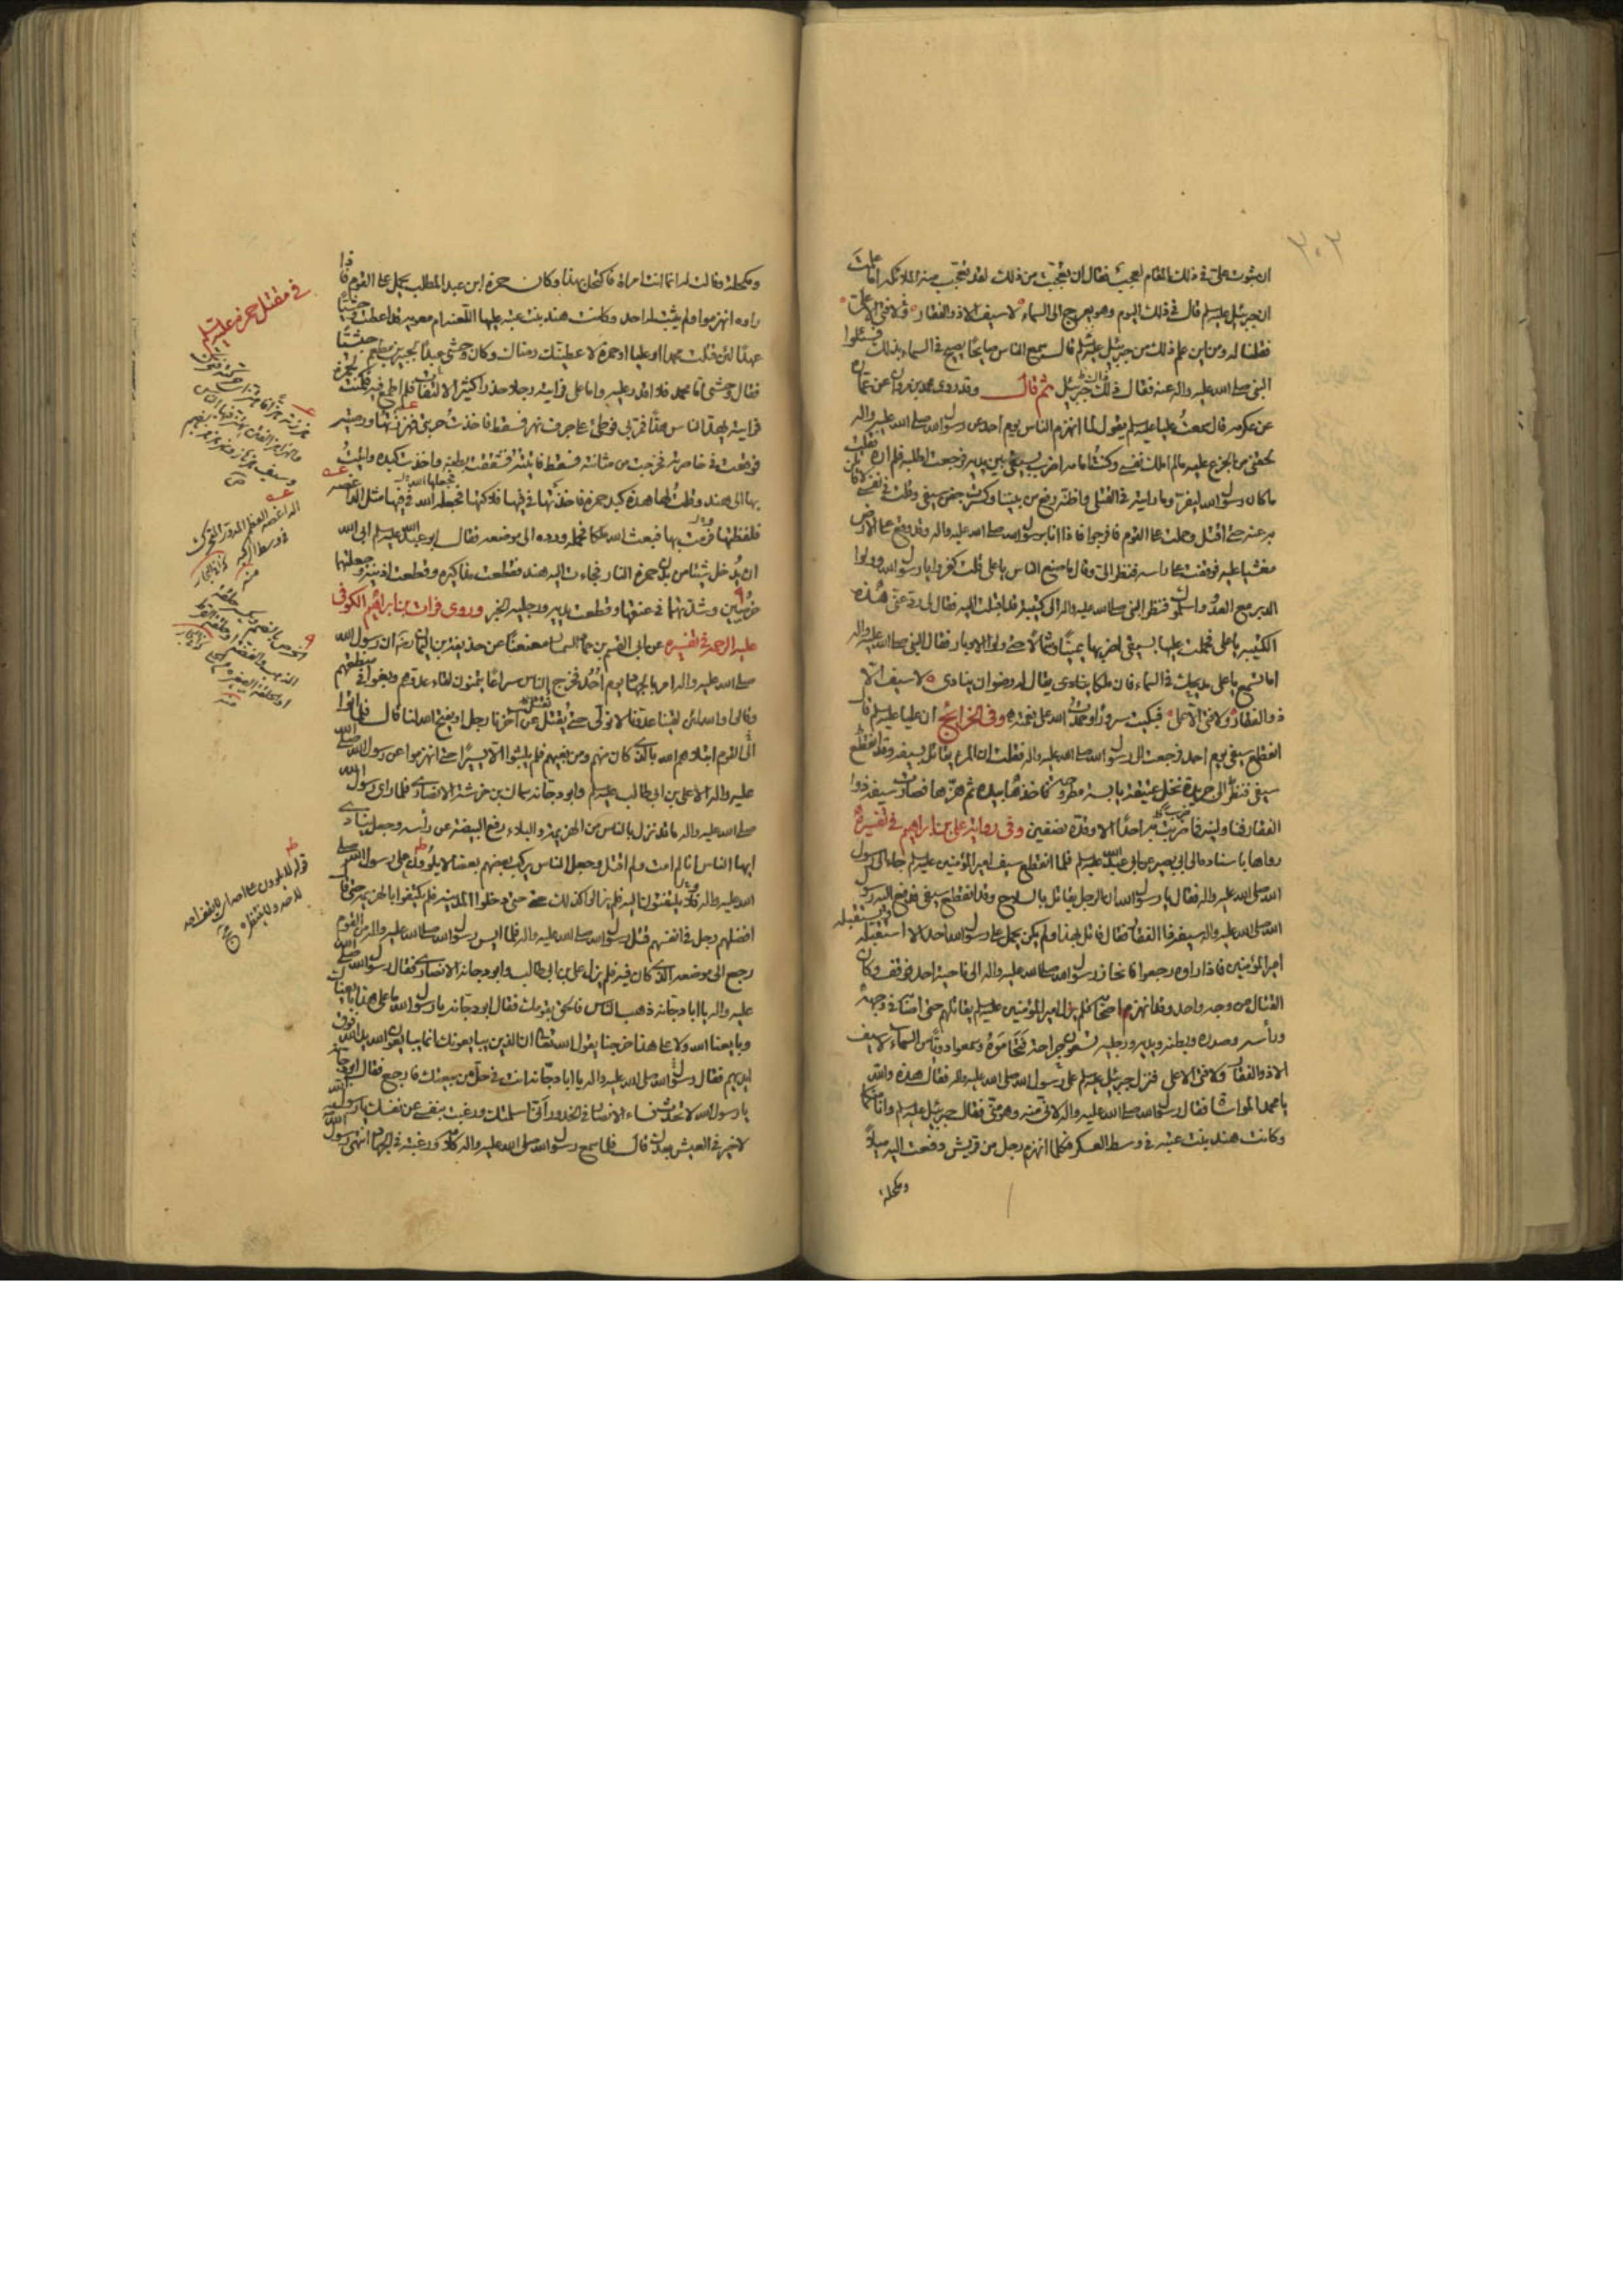 ٢٠٢
ان ثبوت علي في ذلك المقام لعجب فقال ان تعجبت من ذلك لقد تعجبت منه الملائكة اما علمت
ان جبرئيل عليه السلم قال في ذلك اليوم وهو يعرج الى السماء لا سيف الا ذو الفقار ولا فتى الا علي
فقلنا له ومن اين علم ذلك من جبرئيل عليه السلم قال سمع الناس صايحًا يصيح في السماء بذلك فسئلوا
النبي صلى الله عليه واله عنه فقال ذلك جبرئيل ثم قال وقد روى محمد بن مروان عن عمارة
عن عكرمة قال سمعت عليا عليه السلم يقول لما انهزم الناس يوم احد عن رسول الله صلى الله عليه واله
لحقني من الجزع عليه مالم املك نفسي وكنت امامه اضرب بسيفي بين يديه فرجعت اطلبه فلم اره فقلت
ما كان رسول الله ليفر وما رايته في القتلى واظنه رفع من بيننا وكسرت جفن سيفي وقلت في نفسي لاقاتلن
به عنه حتى اقتل وحملت على القوم فافرجوا فاذا انا برسول الله صلى الله عليه واله وقد وقع على الارض
مغشيا عليه فوقفت على راسه فنظر الي وقال ما صنع الناس يا علي قلت كفروا يا رسول الله وولوا
الدبر من العدو واسلموك فنظر النبي صلى الله عليه واله الى كتيبة قد اقبلت اليه فقال لي رد عني هذه
الكتيبة يا علي فحملت عليها بسيفي اضربها يمينًا وشمالًا حتى ولوا الادبار فقال النبي صلى الله عليه واله
اما تسمع يا علي مديحك في السماء فان ملكا ينادى يقال له رضوان ينادى لا سيف الا
ذو الفقار ولا فتى الا علي فبكيت سرورًا وحمدت الله على نعمته وفي الخرائج ان عليا عليه السلم قال
انقطع سيفي يوم احد فرجعت الى رسول الله صلى الله عليه واله فقلت ان المرء يقاتل بسيفه وقد انقطع
سيفي فنظر الى جريدة نخل عتيقة يابسة مطروحة فاخذها بيده ثم هزها فصارت سيفه ذوا
الفقار فناولنيه فما ضربت به احدًا الا وقده نصفين وفي رواية علي بن ابراهيم في تفسيره
رواها باسناده الى ابي بصير عن ابي عبد الله عليه السلم فلما انقطع سيف امير المؤمنين عليه السلم جاء الى رسول
الله صلى الله عليه واله فقال يا رسول الله ان الرجل يقاتل بالسلاح وقد انقطع سيفي فدفع اليه رسول
الله صلى الله عليه واله سيفه ذا الفقار فقال قاتل بهذا ولم يكن يحمل على رسول الله احد الا استقبله
امير المؤمنين فاذا راوه رجعوا فانحاز رسول الله صلى الله عليه واله الى ناحية احد فوقف وكان
القتال من وجه واحد وقد انهزم اصحابه فلم يزل امير المؤمنين عليه السلم يقاتلهم حتى اصابه في وجهه
ورأسه وصدره وبطنه ويديه ورجليه تسعون جراحة فتحاموه وسمعوا دويًا من السماء لا سيف
الا ذو الفقار ولا فتى الا علي فنزل جبرئيل عليه السلم على رسول الله صلى الله عليه واله فقال هذه والله
يا محمد المواساة فقال رسول الله صلى الله عليه واله لاني منه وهو مني فقال جبرئيل عليه السلم وانا منكما
وكانت هند بنت عتبة في وسط العسكر فكلما انهزم رجل من قريش دفعت اليه ميلاً
ومكحلة
ومكحلة وقالت له انما انت امراة فاكتحل بهذا وكان حمزة ابن عبد المطلب يحمل على القوم فاذا
راوه انهزموا ولم يثبت له احد وكانت هند بنت عتبة عليها اللعنة قد اعطت وحشيًا
عهدًا لئن قتلت محمدا او عليا او حمزة لاعطيتك رضاك وكان وحشي عبدًا لجبير بن مطعم حبشيًا
فقال وحشي اما محمد فلا اقدر عليه واما علي فرايته رجلا حذرا كثير الالتفات فلم اطمع فيه فكمنت لحمزة
فرايته يهد الناس هدًا فمر بي فوطئ على جرف نهر فسقط فاخذت حربتي فهززتها ورميته
فوقعت في خاصرته فخرجت من مثانته فسقط فاتيته فشققت بطنه واخذت كبده واتيت
بها الى هند وقلت لها هذه كبد حمزة فاخذتها في فيها فلاكتها فجعله الله في فيها مثل الداغصة
فلفظتها ورمت بها فبعث الله ملكا فحمله ورده الى موضعه فقال ابو عبد الله عليه السلم ابى الله
ان يدخل شيئا من بدن حمزة النار فجاءت اليه هند فقطعت مذاكيره وقطعت اذنيه وجعلتها
خرصين وشدتهما في عنقها وقطعت يديه ورجليه الخبر وروى فرات بن ابراهيم الكوفي
عليه الرحمة في تفسيره عن ابي القسم بن حماد السمسار معنعنًا عن حذيفة بن اليمان ان رسول الله
صلى الله عليه واله امر بالجهاد يوم احد فخرج الناس سراعًا يتمنون لقاء عدوهم وبغوا في منطقهم
وقالوا والله لئن لقينا عدونا لا نولي حتى يقتل عن اخرنا رجل او يفتح الله لنا قال فلما اتوا
الى القوم ابتلاهم الله بالذي كان منهم ومن بغيهم فلم يلبثوا الا يسيرًا حتى انهزموا عن رسول الله صلى الله
عليه واله الا علي بن ابي طالب عليه السلم وابو دجانة سماك بن خرشة الانصاري فلما راى رسول الله
صلى الله عليه واله ما قد نزل بالناس من الهزيمة والبلاء رفع البيضة عن رأسه وجعل ينادي
ايها الناس انا لم امت ولم اقتل وجعل الناس يركب بعضهم بعضا لا يلوون على رسول الله صلى
الله عليه واله فلا يلتفتون اليه فلم يزالوا كذلك حتى دخلوا المدينة فلم يكتفوا بالهزيمة حتى قال
افضلهم رجل في انفسهم قتل رسول الله صلى الله عليه واله فلما ايس رسول الله صلى الله عليه واله من القوم
رجع الى موضعه الذي كان فيه فلم يزل علي بن ابي طالب وابو دجانة الانصاري فقال رسول الله صلى الله
عليه واله يا ابا دجانة ذهب الناس فالحق بقومك فقال ابو دجانة يا رسول الله ما على هذا بايعناك
وبايعنا الله ولا على هذا خرجنا يقول الله تعالى ان الذين يبايعونك انما يبايعون الله يد الله فوق
ايديهم فقال رسول الله صلى الله عليه واله يا ابا دجانة انت في حل من بيعتك فارجع فقال ابو دجانة
يا رسول الله لا تحدث نساء الانصار في الخدور اني اسلمتك ورغبت بنفسي عن نفسك يا رسول الله
لا خير في العيش بعدك قال فلما سمع رسول الله صلى الله عليه واله كلامه ورغبته في الجهاد انتهى رسول الله
في مقتل حمزة عليه السلم
الداغصة العظم المدور المتحرك
في وسط الركبة
منه
الخرص بالضم ويكسر حلقة
الذهب والفضة او حلقة القرط
او الحلقة الصغيرة من الحلي
منه